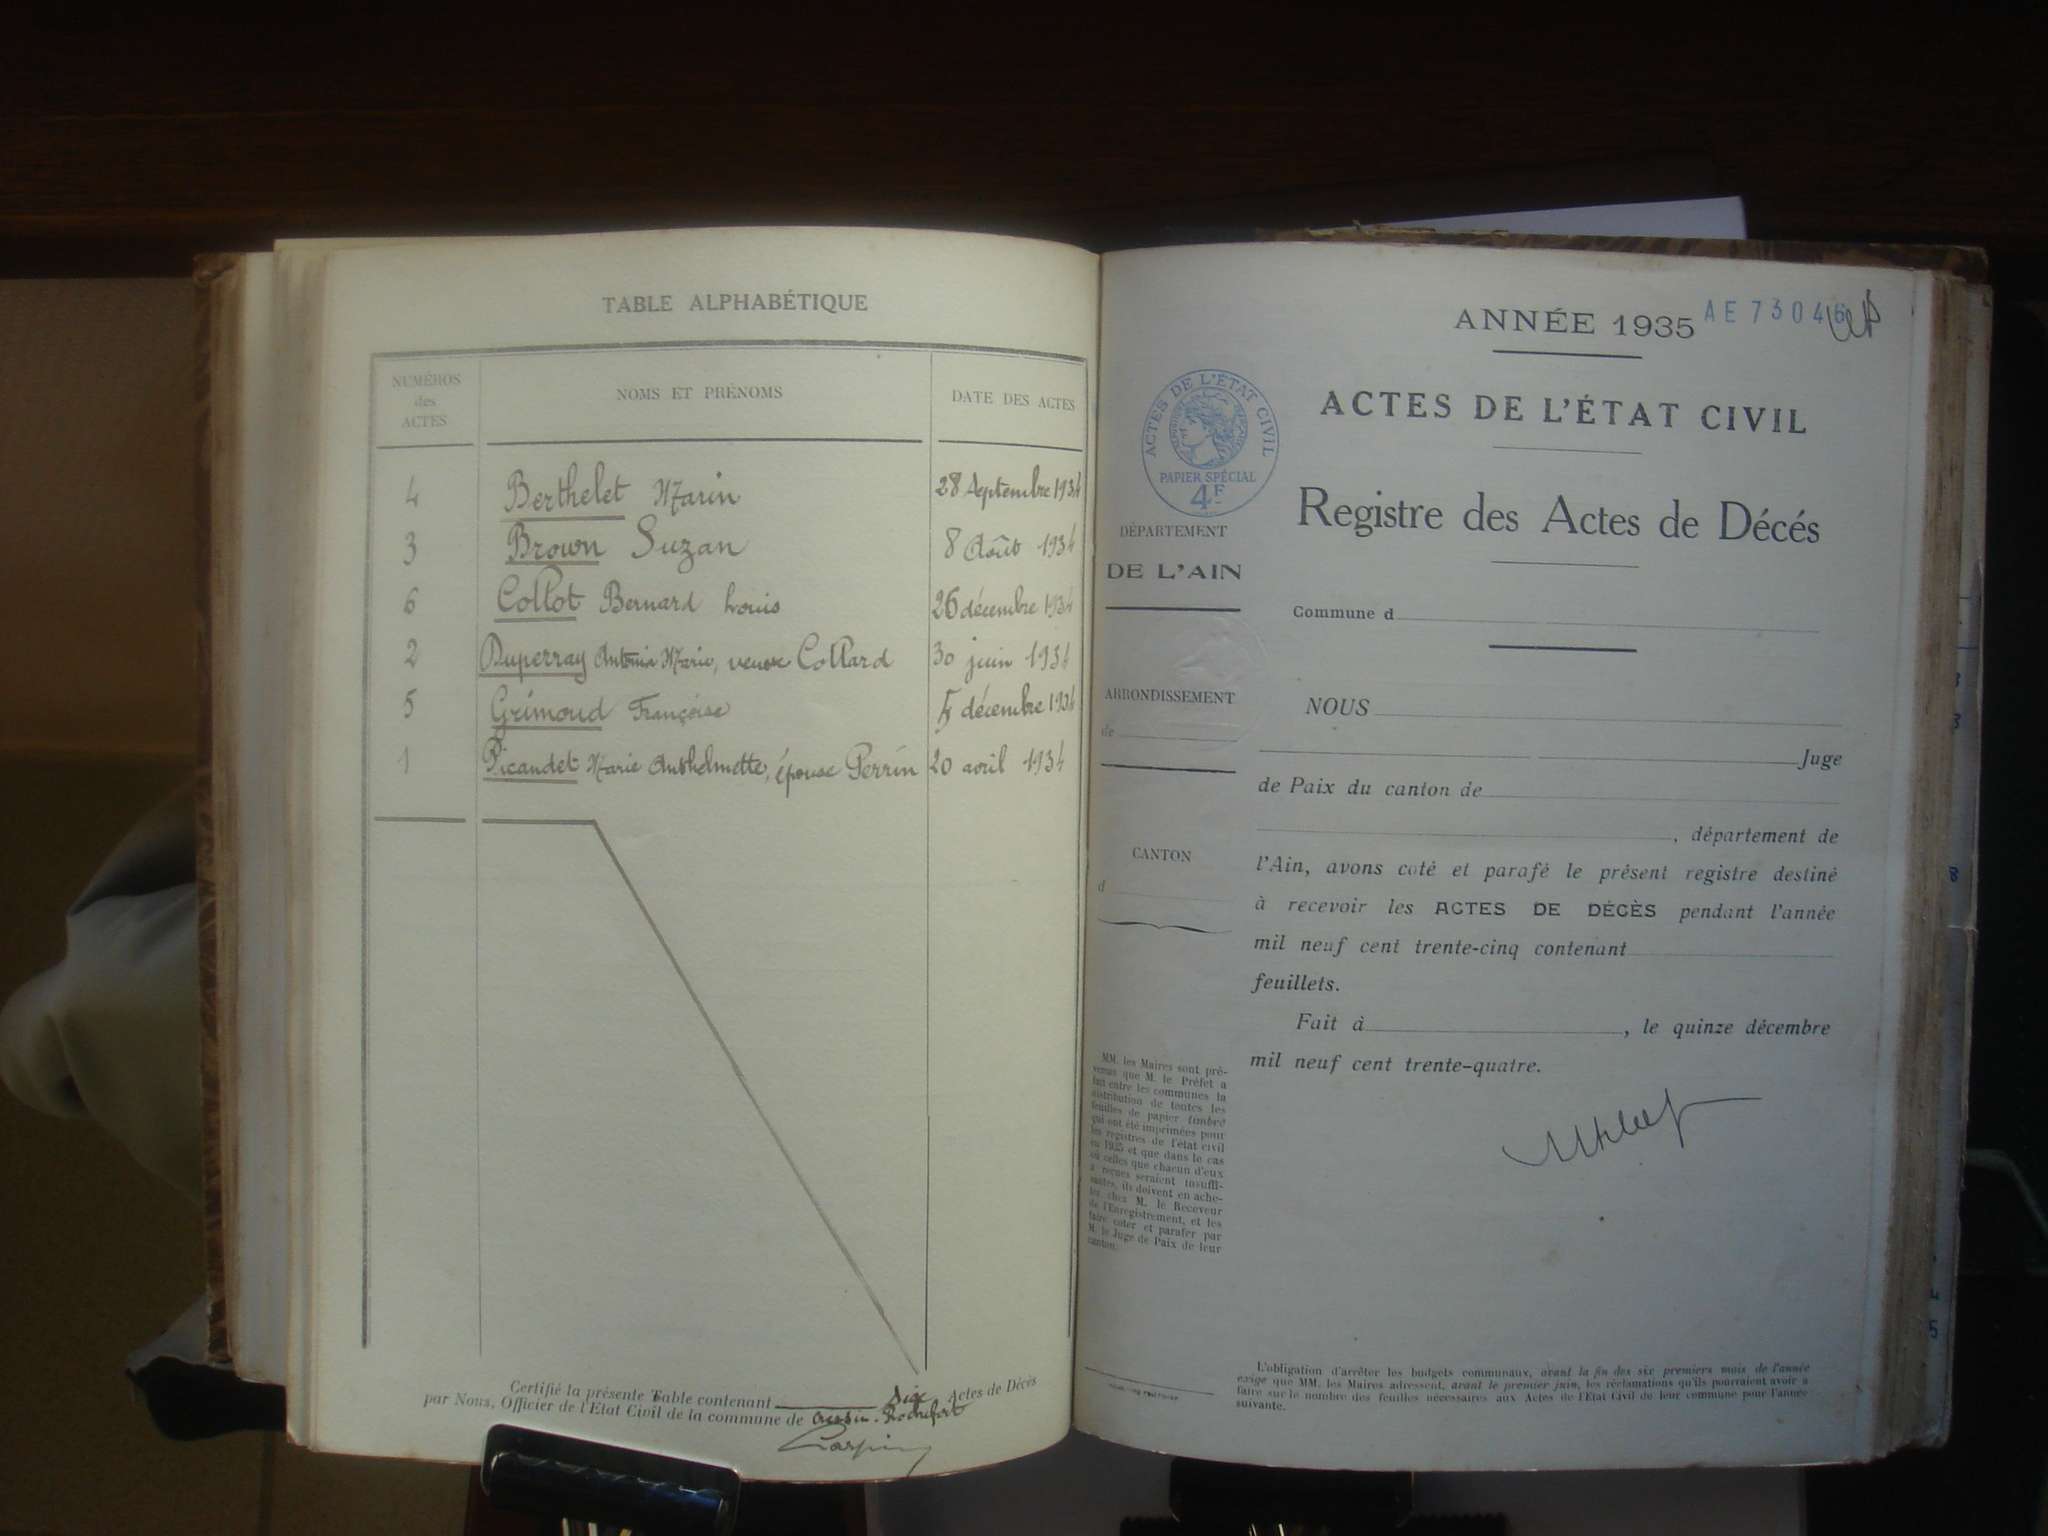 TABLE ALPHABÉTIQUE
NUMÉROS
des
ACTES
NOMS ET PRÉNOMS
DATE DES ACTES
4 Berthelet Marin 28 Septembre 1934
3 Brown Suzan 8 Août 1934
6 Collot Bernard Louis 26 décembre 1934
2 Duperray Antonia Marie, veuve Collard 30 juin 1934
5 Grimoud Françoise 5 décembre 1934
1 Picandet Marie Anthelmette, épouse Perrin 20 avril 1934
Certifié la présente Table contenant six Actes de Décès
par Nous, Officier de l'Etat Civil de la commune de Cressin-Rochefort
ANNÉE 1935
AE 73046
ACTES DE L'ÉTAT CIVIL
PAPIER SPÉCIAL
4F
ACTES DE L'ÉTAT CIVIL
Registre des Actes de Décés
DÉPARTEMENT
DE L'AIN
Commune d
ARRONDISSEMENT
de
CANTON
d
NOUS
Juge
de Paix du canton de
, département de
l'Ain, avons coté et parafé le présent registre destiné
à recevoir les ACTES DE DÉCÈS pendant l'année
mil neuf cent trente-cinq contenant
feuillets.
Fait à , le quinze décembre
mil neuf cent trente-quatre.
MM. les Maires sont pré-
venus que M. le Préfet a
fait entre les communes la
distribution de toutes les
feuilles de papier timbré
qui ont été imprimées pour
les registres de l'état civil
en 1935 et que dans le cas
où celles que chacun d'eux
a reçues seraient insuffi-
santes, ils doivent en ache-
ter chez M. le Receveur
de l'Enregistrement, et les
faire coter et parafer par
M. le Juge de Paix de leur
canton.
L'obligation d'arrêter les budgets communaux, avant la fin des six premiers mois de l'année
exige que MM. les Maires adressent, avant le premier juin, les réclamations qu'ils pourraient avoir à
faire sur le nombre des feuilles nécessaires aux Actes de l'Etat Civil de leur commune pour l'année
suivante.